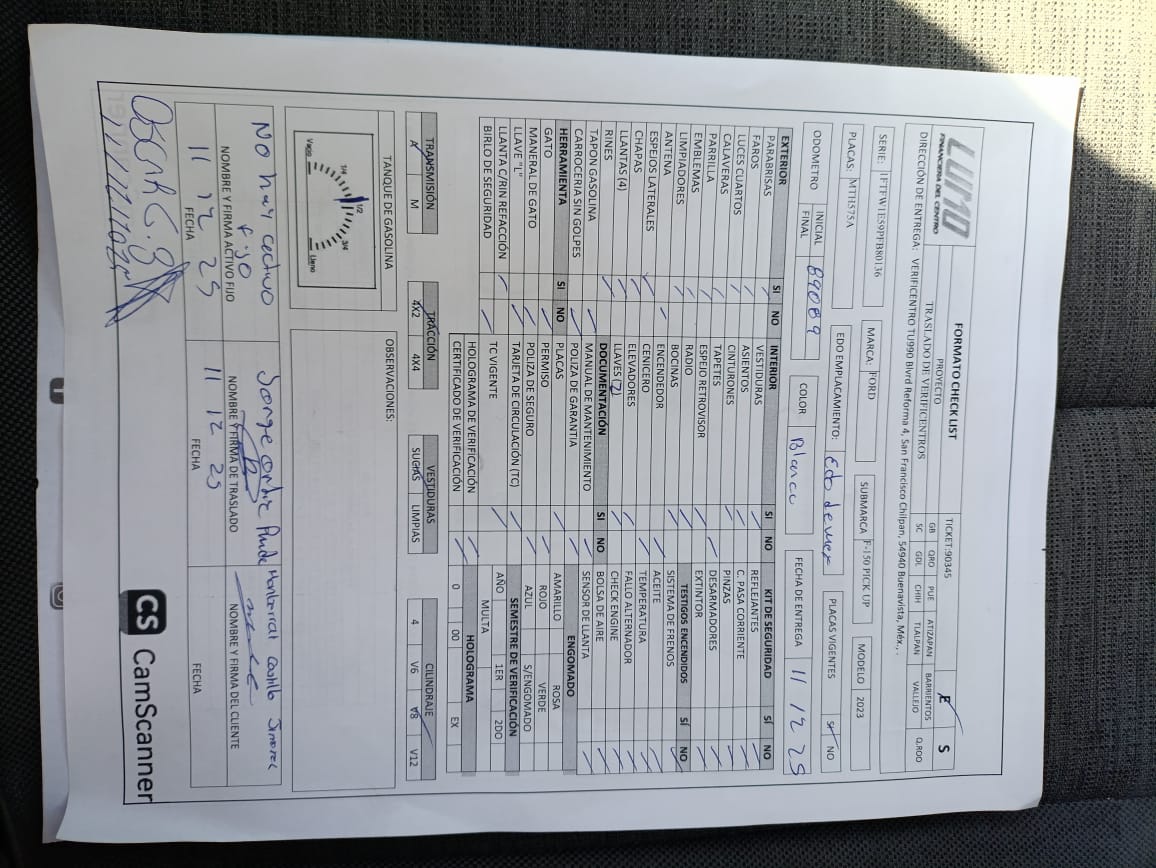 LUMO
FINANCIERA DEL CENTRO
FORMATO CHECK LIST
TICKET:90345
E
S
PROYECTO
TRASLADO DE VERIFICENTROS
GB QRO PUE ATIZAPAN BARRIENTOS Q.ROO
SC GDL CHIH TLALPAN VALLEJO
DIRECCIÓN DE ENTREGA: VERIFICENTRO TU990 Blvrd Reforma 4, San Francisco Chilpan, 54940 Buenavista, Méx., .
SERIE: 1FTFW1E59PFB80136 MARCA: FORD SUBMARCA F-150 PICK UP MODELO 2023
PLACAS: MTH575A EDO EMPLACAMIENTO: Edo de mex PLACAS VIGENTES SI NO
ODOMETRO INICIAL 89089 COLOR Blanco FECHA DE ENTREGA 11 12 25
FINAL
EXTERIOR SI NO INTERIOR SI NO KIT DE SEGURIDAD SÍ NO
PARABRISAS VESTIDURAS REFLEJANTES
FAROS ASIENTOS C. PASA CORRIENTE
LUCES CUARTOS CINTURONES PINZAS
CALAVERAS TAPETES DESARMADORES
PARRILLA ESPEJO RETROVISOR EXTINTOR
EMBLEMAS RADIO TESTIGOS ENCENDIDOS SÍ NO
LIMPIADORES BOCINAS SISTEMA DE FRENOS
ANTENA ENCENDEDOR ACEITE
ESPEJOS LATERALES CENICERO TEMPERATURA
CHAPAS ELEVADORES FALLO ALTERNADOR
LLANTAS (4) LLAVES (2) CHECK ENGINE
RINES DOCUMENTACIÓN SI NO BOLSA DE AIRE
TAPON GASOLINA MANUAL DE MANTENIMIENTO SENSOR DE LLANTA
CARROCERIA SIN GOLPES POLIZA DE GARANTIA ENGOMADO
HERRAMIENTA SI NO PLACAS AMARILLO ROSA
GATO PERMISO ROJO VERDE
MANERAL DE GATO POLIZA DE SEGURO AZUL S/ENGOMADO
LLAVE "L" TARJETA DE CIRCULACIÓN (TC) SEMESTRE DE VERIFICACIÓN
LLANTA C/RIN REFACCIÓN TC VIGENTE AÑO 1ER 2DO
BIRLO DE SEGURIDAD MULTA
HOLOGRAMA DE VERIFICACIÓN HOLOGRAMA
CERTIFICADO DE VERIFICACIÓN 0 00 EX
TRANSMISIÓN TRACCIÓN VESTIDURAS CILINDRAJE
A M 4X2 4X4 SUCIAS LIMPIAS 4 V6 V8 V12
TANQUE DE GASOLINA OBSERVACIONES:
Vacio 1/4 1/2 3/4 Lleno
No hay activo
fijo
Jorge Ortiz
Monterral Castillo Jimenez
NOMBRE Y FIRMA ACTIVO FIJO NOMBRE Y FIRMA DE TRASLADO NOMBRE Y FIRMA DEL CLIENTE
11 12 25 11 12 25
FECHA FECHA FECHA
CS CamScanner